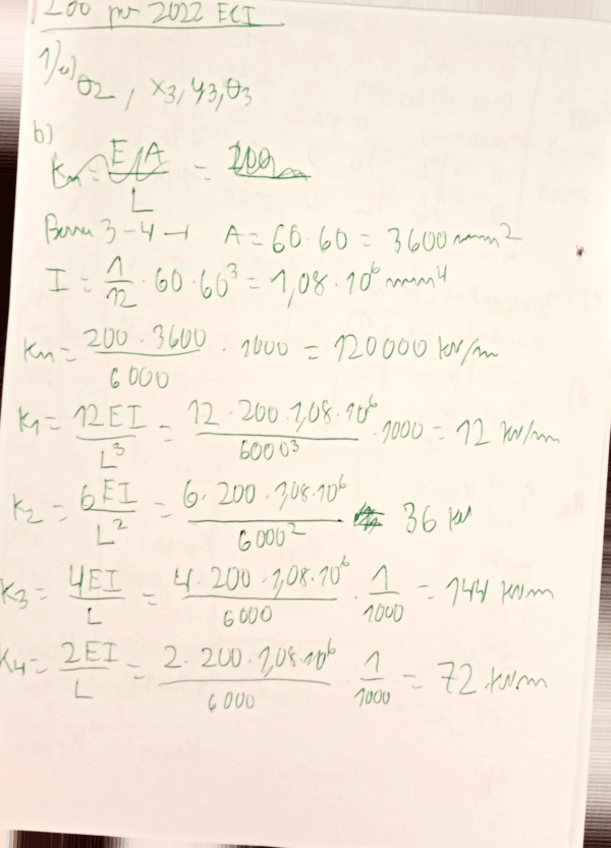 200 per 2022 ECI
1) a) θ2, x3, y3, θ3
b)
Kn = EA/L = 200
3-4 → A = 60·60 = 3600 mm²
I = 1/12 · 60·60³ = 1,08·10⁶ mm⁴
Kn = 200·3600/6000 · 1000 = 120000 kN/m
K1 = 12EI/L³ = 12·200·1,08·10⁶/6000³ · 1000 = 12 kN/m
K2 = 6EI/L² = 6·200·1,08·10⁶/6000² 36 kN
K3 = 4EI/L = 4·200·1,08·10⁶/6000 · 1/1000 = 144 kNm
K4 = 2EI/L = 2·200·1,08·10⁶/6000 · 1/1000 = 72 kNm